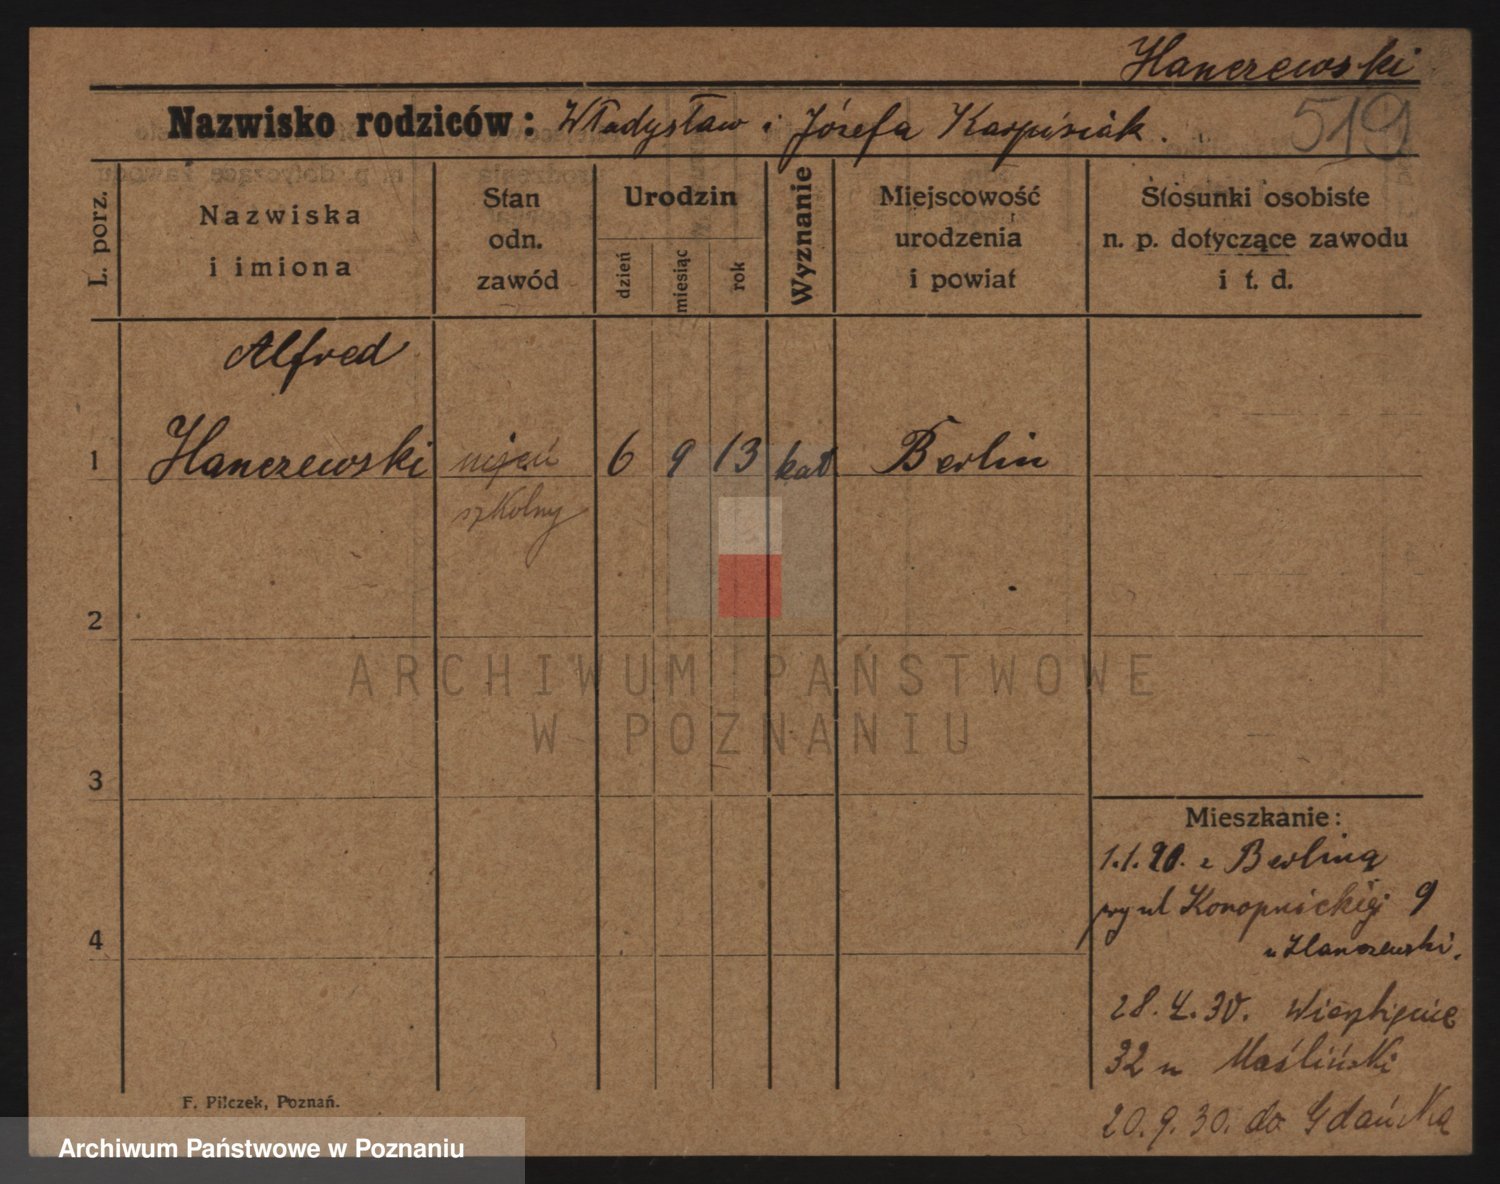 Hanczewski
Nazwisko rodziców: Władysław i Józefa Kasprisiak.
519
L. porz.
Nazwiska
i imiona
Stan
odn.
zawód
Urodzin
dzień
miesiąc
rok
Wyznanie
Miejscowość
urodzenia
i powiat
Stosunki osobiste
n. p. dotyczące zawodu
i t. d.
Alfred
1 Hanczewski uczeń 6 9 13 kat Berlin
szkolny
2
ARCHIWUM PAŃSTWOWE
W POZNANIU
3
Mieszkanie:
1.1.20. z Berlina
przy ul Konopnickiej 9
4
u Hanczewski.
28.4.30. Wierzbięcice
32 u Maśliński
20.9.30. do Gdańska
F. Pilczek, Poznań.
Archiwum Państwowe w Poznaniu